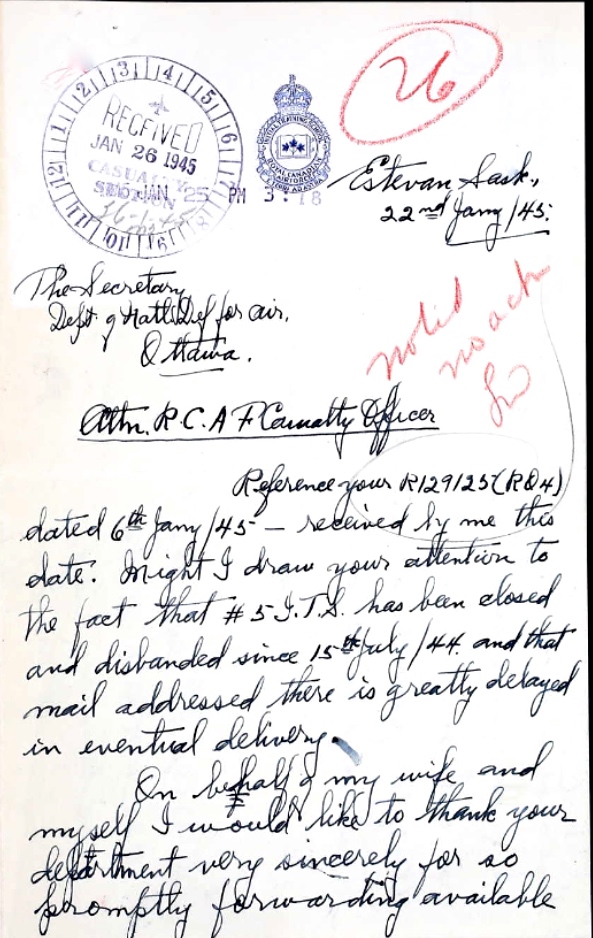 26
RECEIVED
JAN 26 1945
CASUALTY
SECTION
JAN 25 PM 3:18
1 2 3 4 5 6 8 9 10 11 12
INITIAL TRAINING SCHOOL
ROYAL CANADIAN
AIR FORCE
Estevan Sask.,
22nd Jany/45.
The Secretary
Deft of Natl Def for air,
Ottawa.
noted
no ack
Attn. R.C.A.F Casualty Officer
Reference your R129125(RO4)
dated 6th Jany/45 — received by me this
date. Might I draw your attention to
the fact that #5 I.T.S. has been closed
and disbanded since 15th July/44 and that
mail addressed there is greatly delayed
in eventual delivery.
On behalf of my wife and
myself I would like to thank your
department very sincerely for so
promptly forwarding available